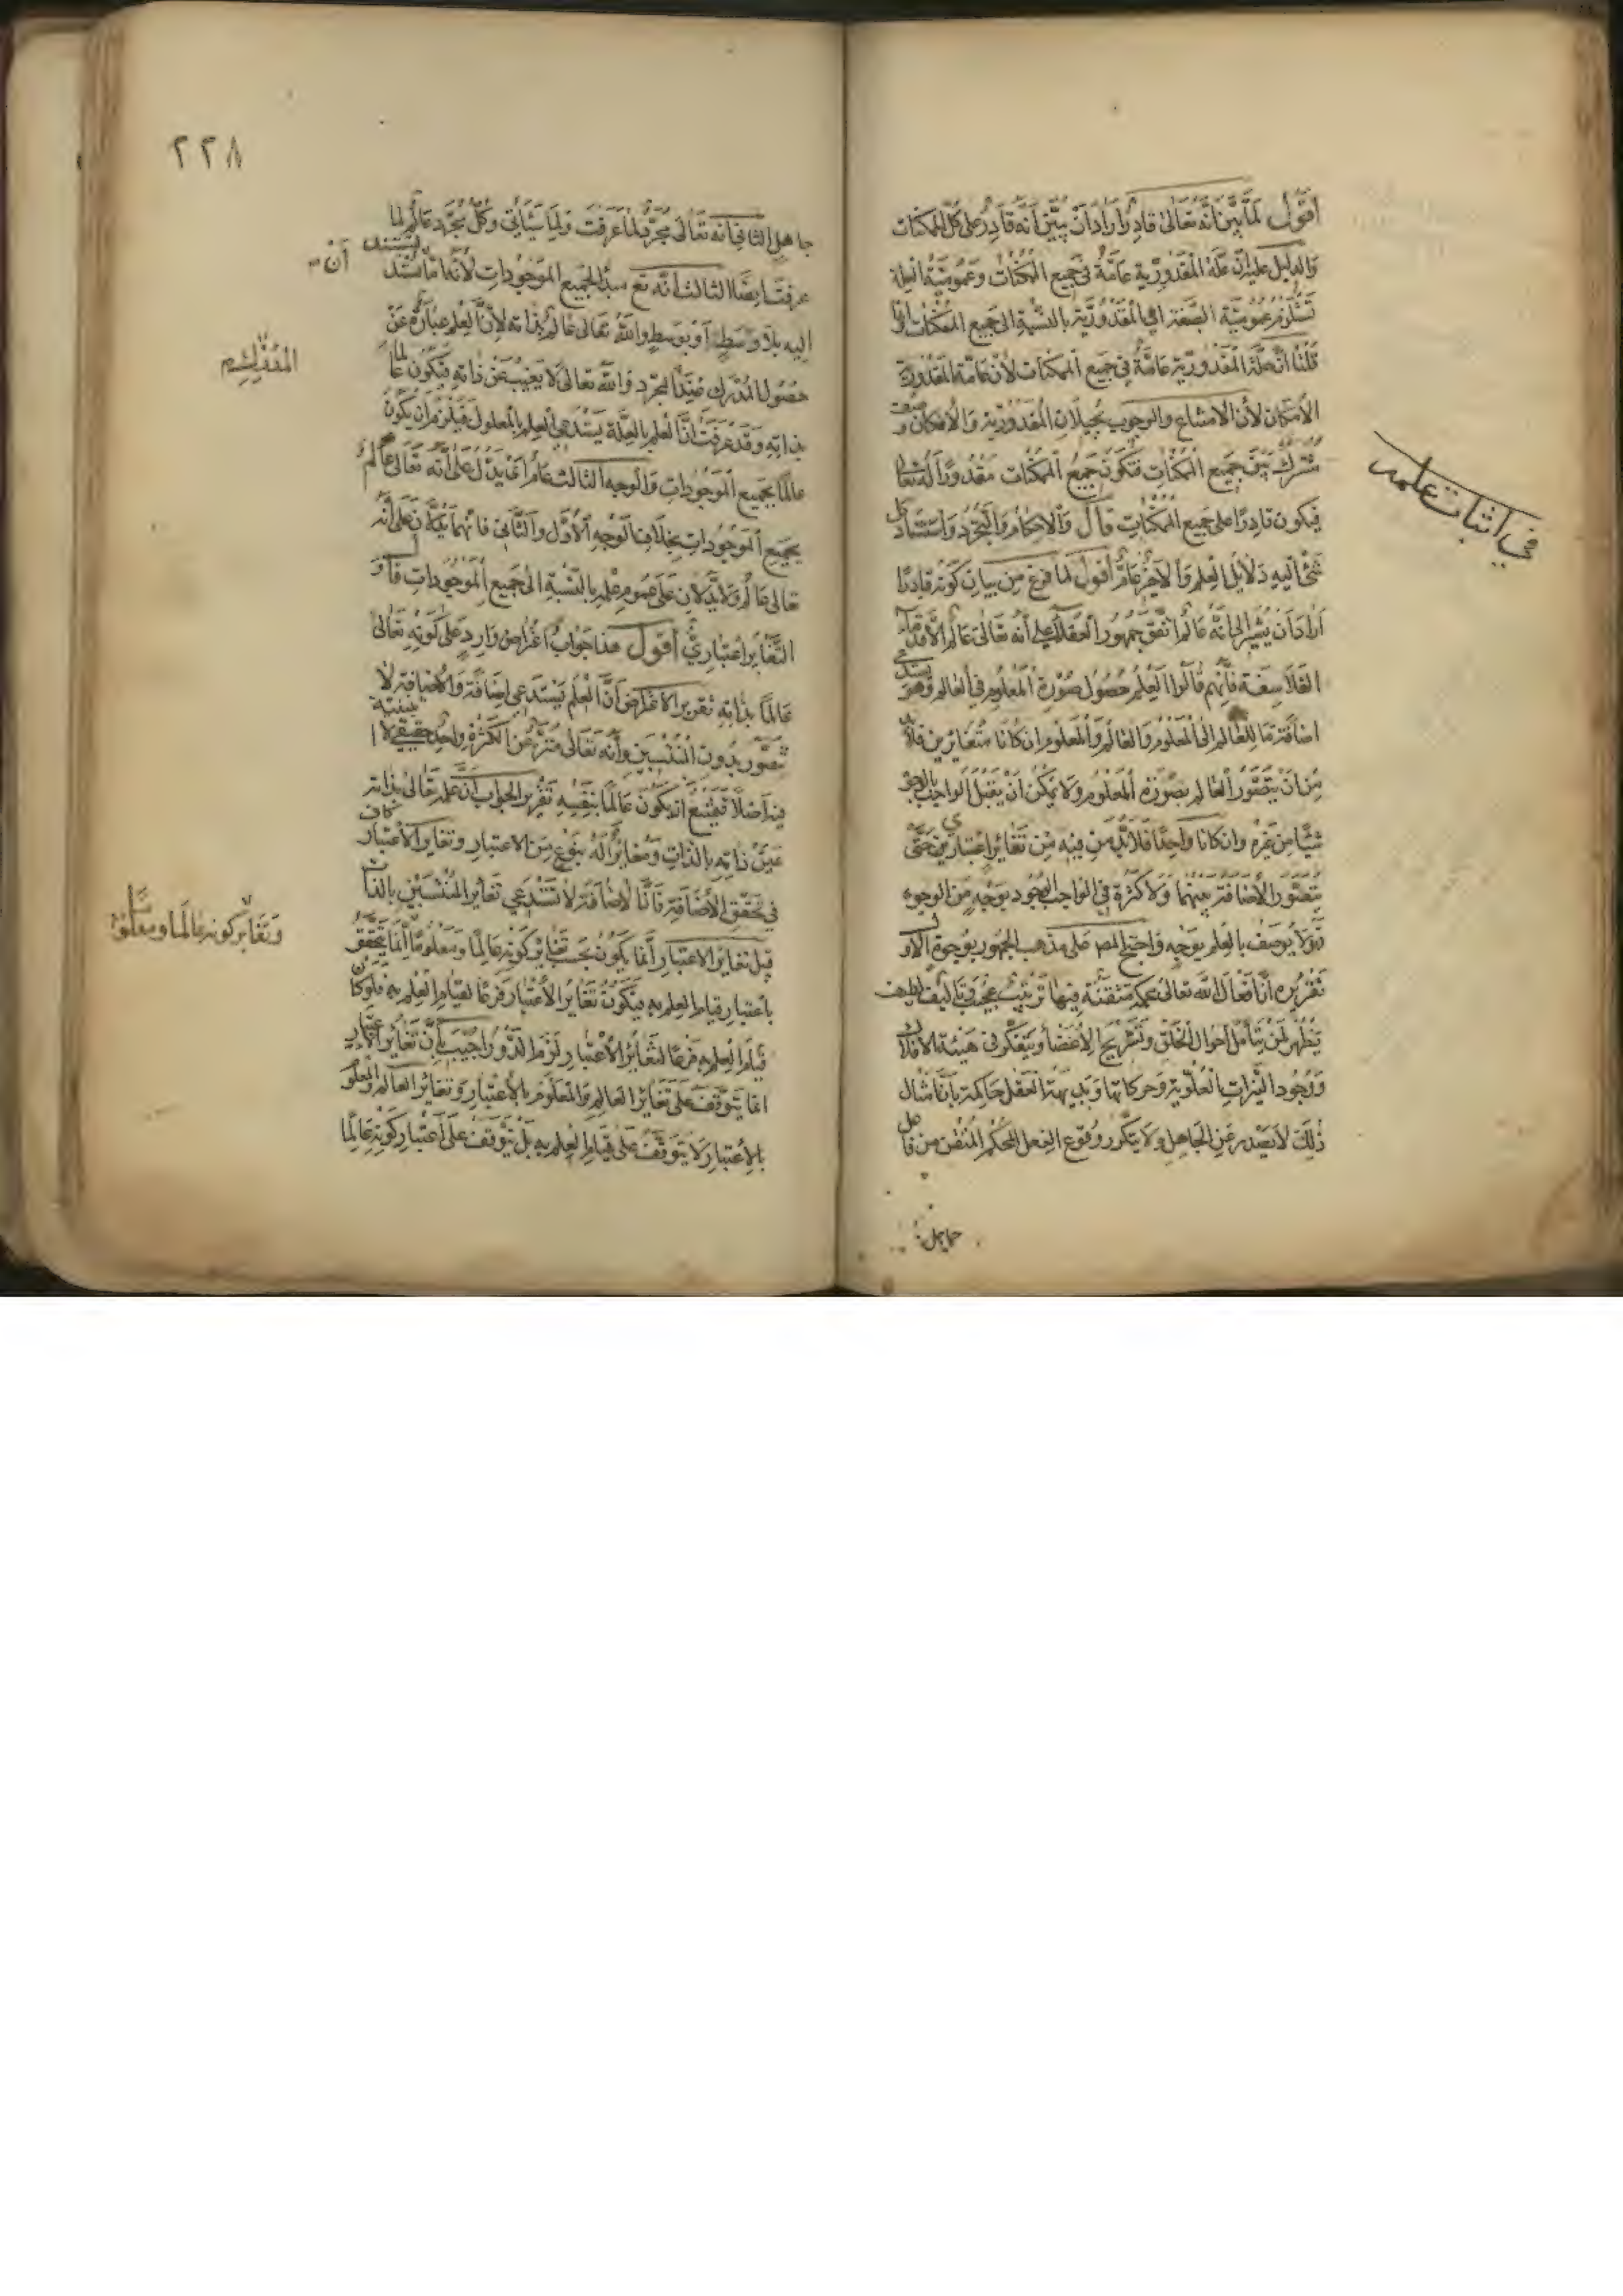 اقول لما بين انه تعالى قادر اراد ان يبين انه قادر على كل الممكنات
والدليل عليه ان علة المقدورية عامة في جميع الممكنات وعمومية العلة
تستلزم عمومية الصفة اعني المقدورية بالنسبة الى جميع الممكنات وانما
قلنا ان علة المقدورية عامة في جميع الممكنات لان علة المقدورية
الامكان لان الامتناع والوجوب يحيلان المقدورية والامكان وصف
مشترك بين جميع الممكنات فتكون جميع الممكنات مقدورا له تعالى
فيكون قادرا على جميع الممكنات قال والاحكام والتجرد واستناد كل
شئ اليه دلايل العلم والاخير عام اقول لما فرغ من بيان كونه قادرا
اراد ان يشير الى انه عالم اتفق جمهور العقلاء على انه تعالى عالم الا قدماء
الفلاسفة فانهم قالوا العلم حصول صورة المعلوم في العالم وهو يستدعي
اضافة ما للعالم الى المعلوم والعالم والمعلوم ان كانا متغايرين فلا بد
من ان يتصور العالم بصورة المعلوم ولا يمكن ان يقبل الواجب الوجود
شيئا من غيره وان كانا واحدا فلا بد من فيه من تغاير اعتباري حتى
يتصور الاضافة بينهما ولا كثرة في الواجب الوجود بوجه من الوجوه
ولا يوصف بالعلم بوجه واحتج المص على مذهب الجمهور بوجوه الاول
تقريره ان افعال الله تعالى محكمة متقنة فيها ترتيب عجيب وتأليف لطيف
يظهر لمن يتأمل احوال الخلق وتشريح الاعضا ويتفكر في هيئة الافلاك
ووجود النيرات العلوية وحركاتها وبديهة العقل حاكمة بان امثال
ذلك لا يصدر عن الجاهل ولا يتكرر وقوع الفعل المحكم المتقن من فاعل
جاهل
في اثبات علمه
٢٢٨
جاهل الثاني انه تعالى مجرد لما عرفت ولما سيأتي وكل مجرد عالم لما
عرفت ايضا الثالث انه تع مبدأ لجميع الموجودات لانها مما تستند
اليه بلا وسط او بوسط والله تعالى عالم بذاته لان العلم عبارة عن
حصول المدرك عند المجرد والله تعالى لا يغيب عن ذاته فيكون عالما
بذاته وقد عرفت ان العلم بالعلة يستدعي العلم بالمعلول فيلزم ان يكون
عالما بجميع الموجودات والوجه الثالث عام انما يدل على انه تعالى عالم
بجميع الموجودات بخلاف الوجه الاول والثاني فانهما يدلان على انه
تعالى عالم ولا يدلان على عموم علمه بالنسبة الى جميع الموجودات قال و
التغاير اعتباري اقول هذا جواب اعتراض وارد على كونه تعالى
عالما بذاته تقرير الاعتراض ان العلم يستدعي اضافة والاضافة لا
تتصور بدون المنتسبين وانه تعالى منزه عن الكثرة واحد حقيقي لا اثنينية
فيه اصلا فيمتنع ان يكون عالما بنفسه تقرير الجواب ان علمه تعالى بذاته
عين ذاته بالذات ومغاير له بنوع من الاعتبار وتغاير الاعتبار كاف
في تحقق الاضافة فان الاضافة لا تستدعي تغاير المنتسبين بالذات
قيل تغاير الاعتبار انما يكون بحسب تغاير كونه عالما ومعلوما انما يتحقق
باعتبار قيام العلم به فيكون تغاير الاعتبار فرعا لقيام العلم به فلو كان
قيام العلم به فرعا لتغاير الاعتبار لزم الدور اجيب بان تغاير اعتبار
انما يتوقف على تغاير العالم والمعلوم بالاعتبار وتغاير العالم والمعلوم
بالاعتبار لا يتوقف على قيام العلم به بل يتوقف على اعتبار كونه عالما
أن
وتغاير كونه عالما ومعلوما